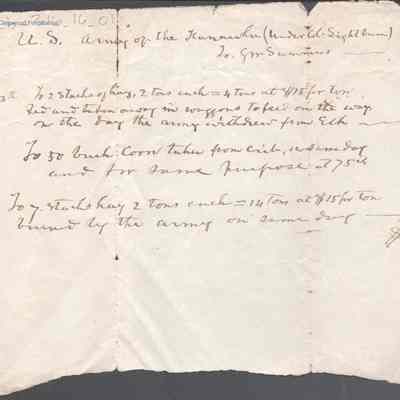 U.S. Army of the Kanawha (Under Col. Lightburn)
To. Geo Summers
To 2 stacks of hay, 2 tons each = 4 tons at $15 pr ton
fed and taken away in waggons to feed on the way
on the day the army withdrew from Elk
To 50 bush: Corn taken from Crib, same day
and for same purpose at 75 cts
To 7 stacks hay 2 tons each = 14 tons at $15 pr ton
burned by the army on same day